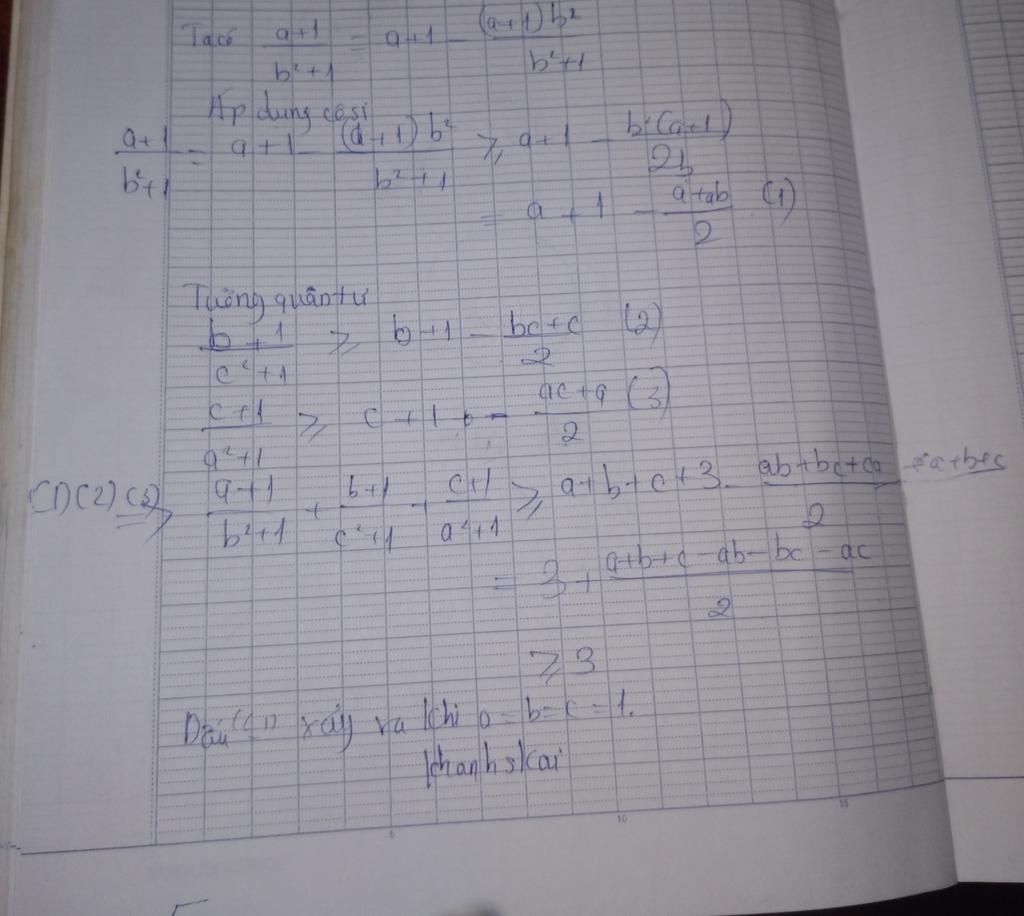 Ta có a+1/b²+1 = a+1 - (a+1)b²/b²+1
Áp dụng côsi
a+1/b²+1 = a+1 - (a+1)b²/b²+1 ⩾ a+1 - b²(a+1)/2b
= a+1 - a+ab/2 (1)
Tương quân tự
b+1/c²+1 ⩾ b+1 - bc+c/2 (2)
c+1/a²+1 ⩾ c+1 - ac+a/2 (3)
(1)(2)(3) => a+1/b²+1 + b+1/c²+1 + c+1/a²+1 ⩾ a+b+c+3 - ab+bc+ca+a+b+c/2
= 3 + a+b+c-ab-bc-ac/2
⩾ 3
Dấu "=" xảy ra khi a=b=c=1.
khanhskai
5 10 15